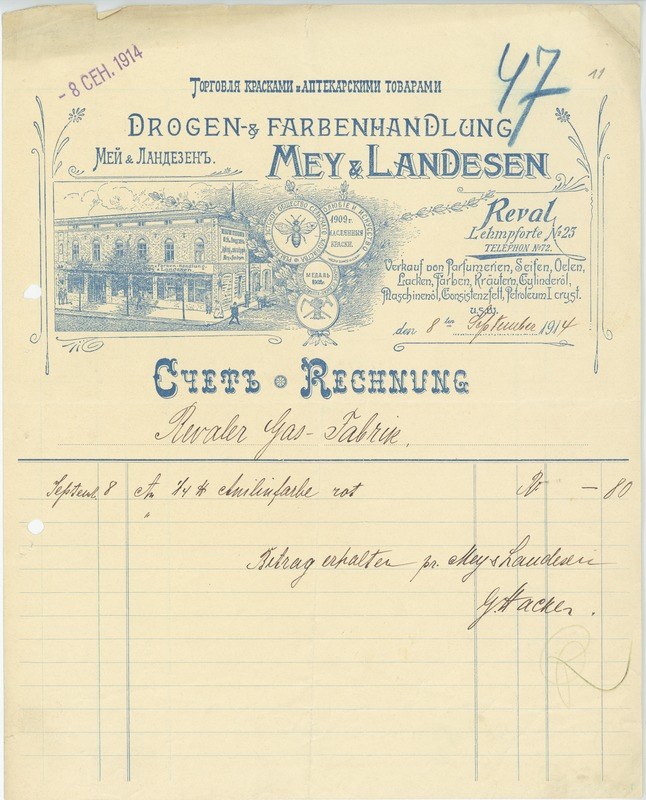 - 8 СЕН. 1914
47
18
Торговля красками и аптекарскими товарами
Drogen- & Farbenhandlung
Мей & Ландезенъ.
Mey & Landesen
Reval
Lehmpforte No 23
Telephon No 72.
1909 г.
масляныя
краски.
медаль
Verkauf von Parfumerien, Seifen, Oelen,
Lacken, Farben, Kräutern, Cylinderöl,
Maschinenöl, Consistenzfett, Petroleum I cryst.
u.s.w.
den 8 ten September 1914
Счетъ Rechnung
Revaler Gas-Fabrik.
Septemb. 8 An 1/4 ℔ Anilinfarbe rot R – 80
"
Betrag erhalten pr. Mey & Landesen
G. Hacker.